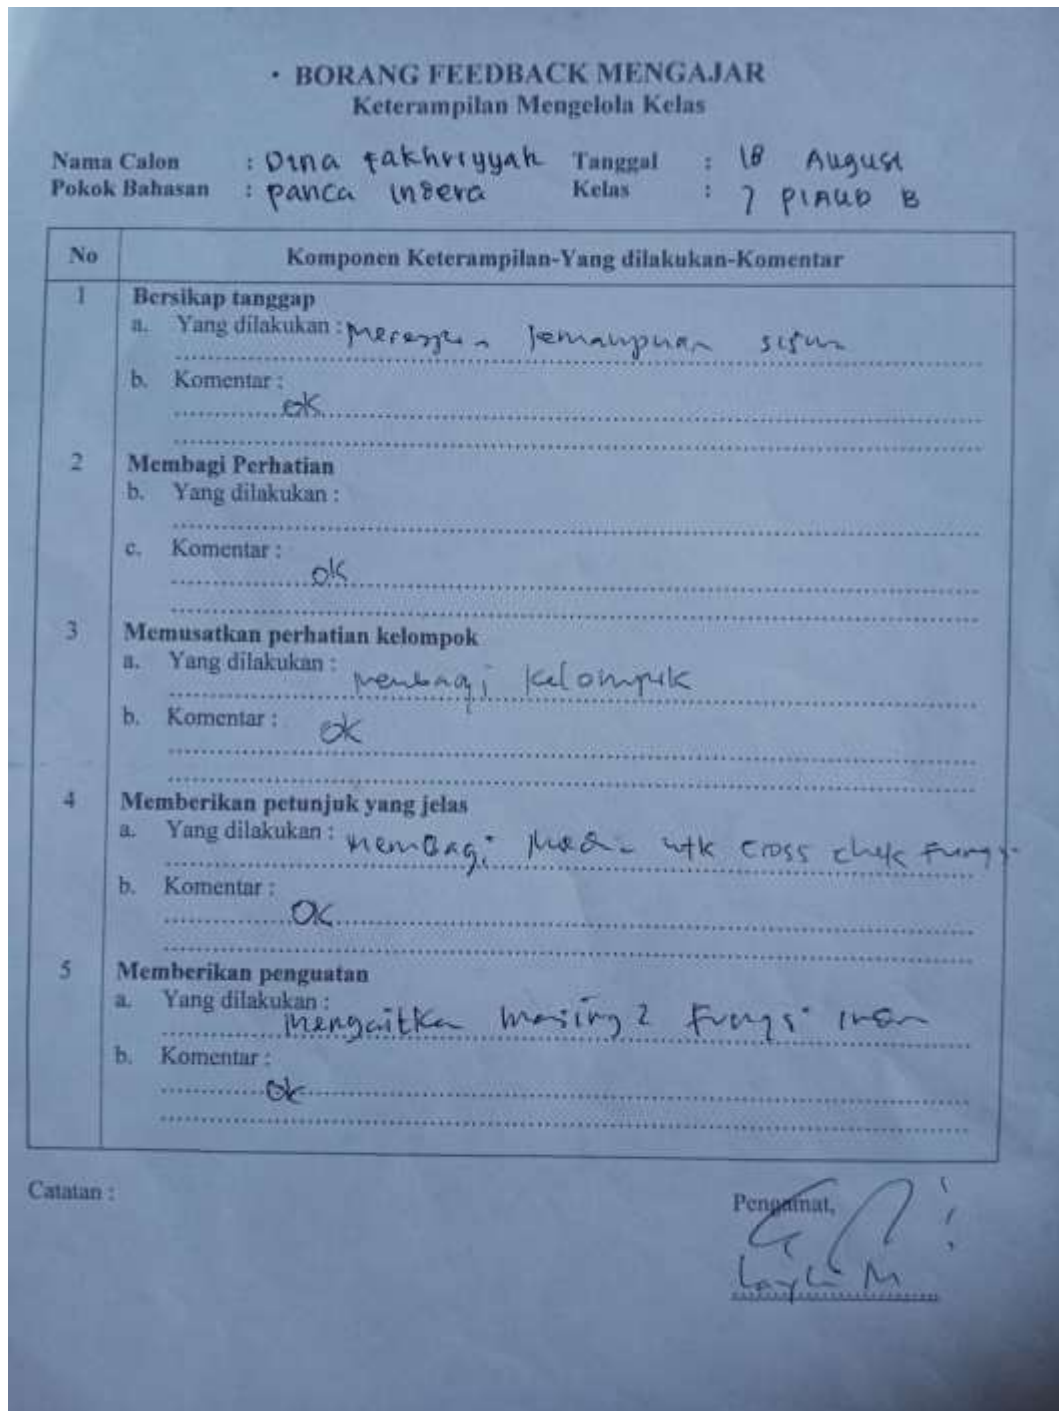 • BORANG FEEDBACK MENGAJAR
Keterampilan Mengelola Kelas
Nama Calon : Dina Fakhriyyah Tanggal : 18 August
Pokok Bahasan : Panca Indera Kelas : 7 PIAUD B
No Komponen Keterampilan-Yang dilakukan-Komentar
1 Bersikap tanggap
a. Yang dilakukan : kemampuan
b. Komentar :
ok
2 Membagi Perhatian
b. Yang dilakukan :
c. Komentar :
ok
3 Memusatkan perhatian kelompok
a. Yang dilakukan :
membagi kelompok
b. Komentar :
ok
4 Memberikan petunjuk yang jelas
a. Yang dilakukan : membagi utk cross chek fungsi
b. Komentar :
OK
5 Memberikan penguatan
a. Yang dilakukan :
mengaitka masing2 fungsi
b. Komentar :
ok
Catatan :
Pengamat,